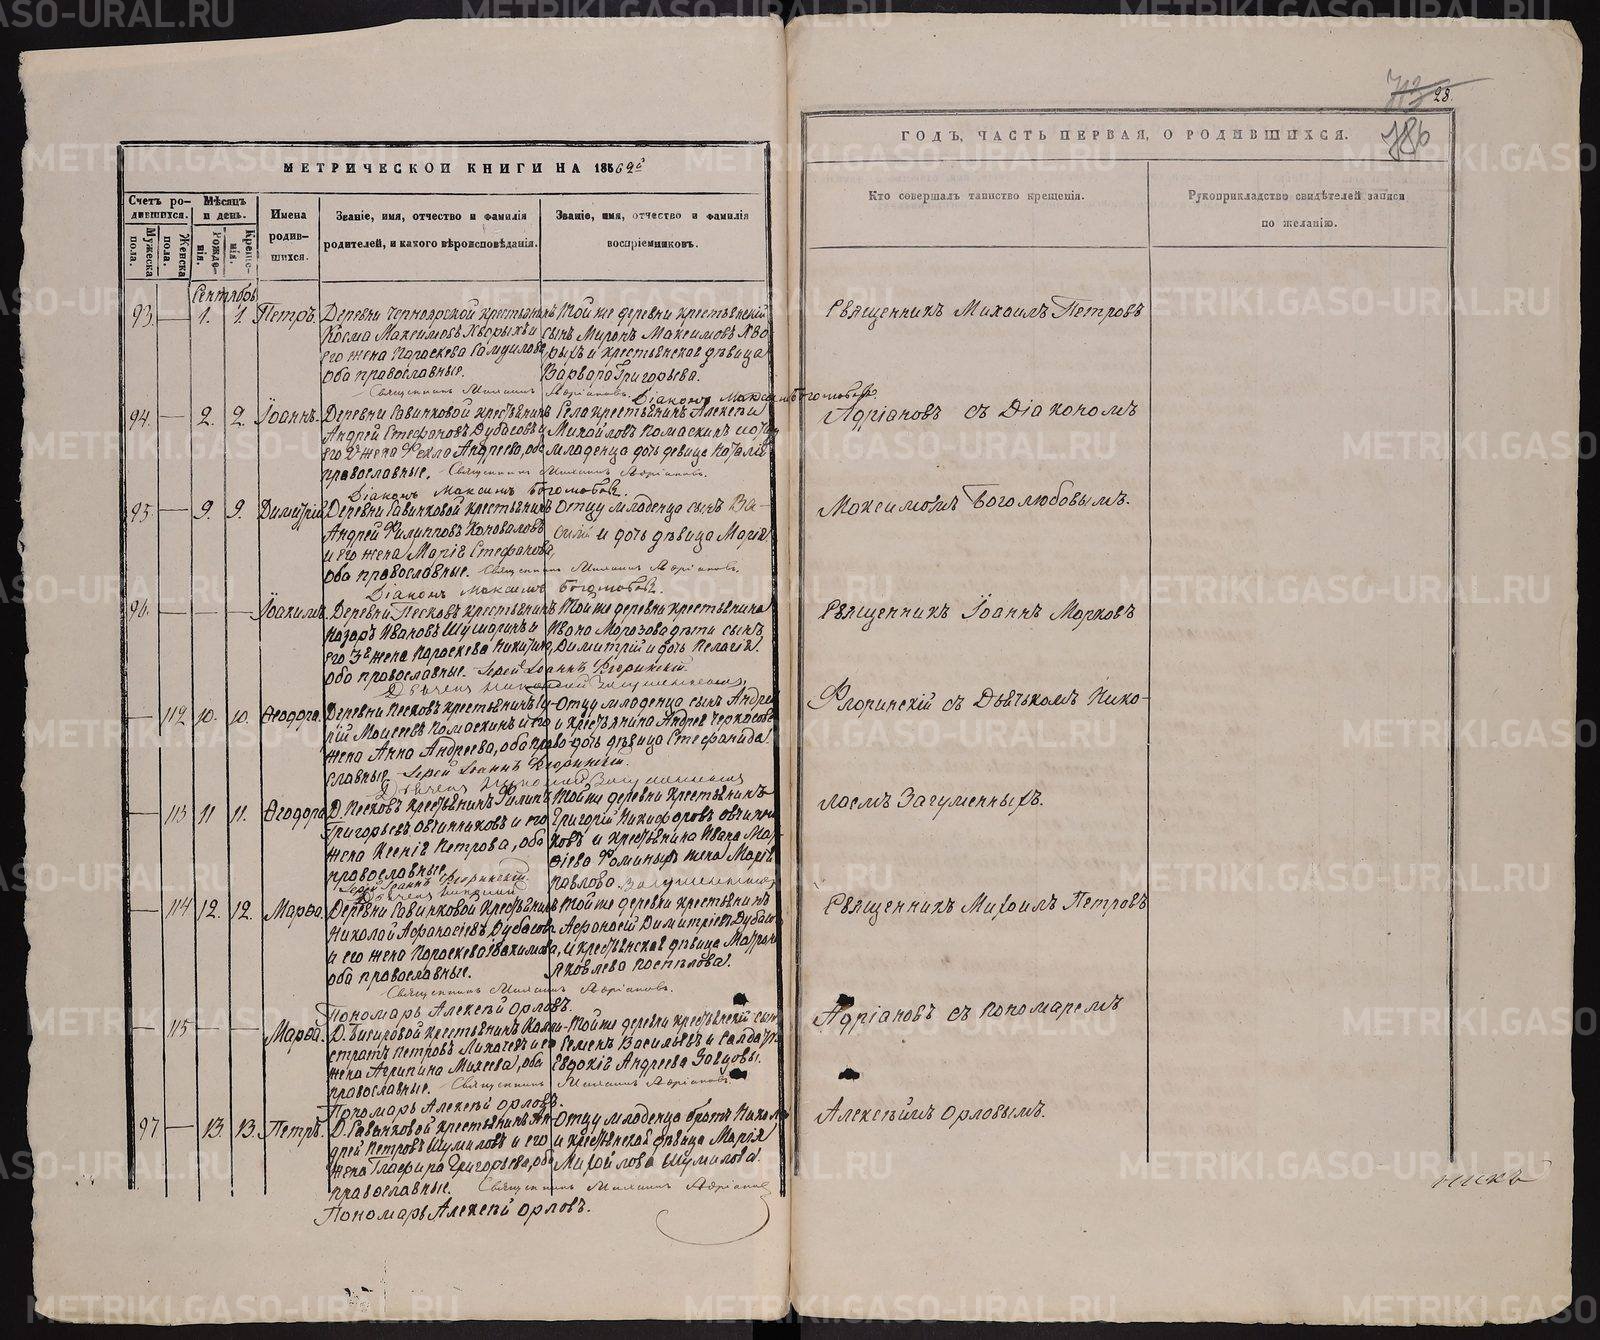 МЕТРИЧЕСКОЙ КНИГИ НА 1862й
Счетъ родившихся.
Мужеска пола.
Женска пола.
Мѣсяцъ и день.
Рожденія.
Крещенія.
Имена родившихся.
Званіе, имя, отчество и фамилія родителей, и какого вѣроисповѣданія.
Званіе, имя, отчество и фамилія воспріемниковъ.
Сентябрь
93. — 1. 1. Петръ.
Деревни Черноярской крестьянинъ
Косма Максимовъ Хворыхъ и
его жена Параскева Самуилова
оба православные.
Той же деревни крестьянскій
сынъ Миронъ Максимовъ Хво
рыхъ и крестьянская дѣвица
Варвара Григорьева.
Священникъ Михаилъ Адріановъ. Діаконъ Максимъ Боголюбовъ.
94. — 2. 2. Іоаннъ.
Деревни Савинковой крестьянинъ
Андрей Стефановъ Дубасовъ и
его 2я жена Фекла Андреева, оба
православные.
Села крестьянинъ Алексѣй
Михайловъ Помаскинъ и отцу
младенца дочь девица Наталія
Священникъ Михаилъ Адріановъ.
Діаконъ Максимъ Боголюбовъ.
95 — 9. 9. Димитрій
Деревни Савинковой крестьянинъ
Андрей Филипповъ Коноваловъ
и его жена Марія Стефанова,
оба православные.
Отцу младенца сынъ Ва-
силій и дочь дѣвица Марія
Священникъ Михаилъ Адріановъ.
Діаконъ Максимъ Боголюбовъ.
96. — — — Іоакимъ.
Деревни Песковъ крестьянинъ
Назаръ Ивановъ Шумаринъ и
его 3я жена Параскева Никитина,
оба православные.
Той же деревни крестьянина
Ивана Морозова дѣти сынъ
Димитрій и дочь Пелагія
Іерей Іоаннъ Флоринскій.
Дьячекъ Николай Загуменныхъ
— 112 10. 10. Ѳеодора.
Деревни Песковъ крестьянинъ
Моисеевъ Помаскинъ и его
жена Анна Андреева, оба право-
славные
Отцу младенца сынъ Андрей
и крестьянина Андрея Черкасова
дочь дѣвица Стефанида
Іерей Іоаннъ Флоринскій.
Дьячекъ Николай Загуменныхъ
— 113 11 11. Ѳеодора
Д. Песковъ крестьянинъ Филипъ
Григорьевъ Овчинниковъ и его
жена Ксенія Петрова, оба
православные
Той же деревни крестьянинъ
Григорій Никифоровъ Овчинни
ковъ и крестьянина Ивана
Фоминыхъ жена Марія
Павлова
Іерей Іоаннъ Флоринскій.
Дьячекъ Николай Загуменныхъ
— 114 12. 12. Марѳа.
Деревни Савинковой крестьянинъ
Николай Афанасіевъ Дубасовъ
и его жена Параскева Іоакимова,
оба православные.
Той же деревни крестьянинъ
Афонасій Димитріевъ Дубасовъ
и крестьянская дѣвица Матрона
Яковлева Поспѣлова.
Священникъ Михаилъ Адріановъ.
Пономарь Алексѣй Орловъ.
— 115 — — Марѳа.
Д. Бисеровой крестьянинъ Кали-
стратъ Петровъ Лихачевъ и его
жена Агрипина Михеева, оба
православные.
Той же деревни крестьянскій сынъ
Семенъ Васильевъ и
Евдокія Андреева Завцовы.
Священникъ Михаилъ Адріановъ.
Пономарь Алексѣй Орловъ.
97 — 13. 13. Петръ.
Д. Савинковой крестьянинъ Ан-
дрей Петровъ Шумиловъ и его
жена Глафира Григорьева, оба
православные.
Отцу младенца братъ
и крестьянская дѣвица Марія
Михайлова Шумилова.
Священникъ Михаилъ Адріановъ
Пономарь Алексѣй Орловъ.
28.
786
ГОДЪ, ЧАСТЬ ПЕРВАЯ, О РОДИВШИХСЯ.
Кто совершалъ таинство крещенія.
Рукоприкладство свидѣтелей записи
по желанію.
Священникъ Михаилъ Петровъ
Адріановъ съ Діакономъ
Максимомъ Боголюбовымъ.
Священникъ Іоаннъ Марковъ
Флоринскій съ Дьячькомъ Нико-
лаемъ Загуменныхъ.
Священникъ Михаилъ Петровъ
Адріановъ съ Пономаремъ
Алексѣймъ Орловымъ.